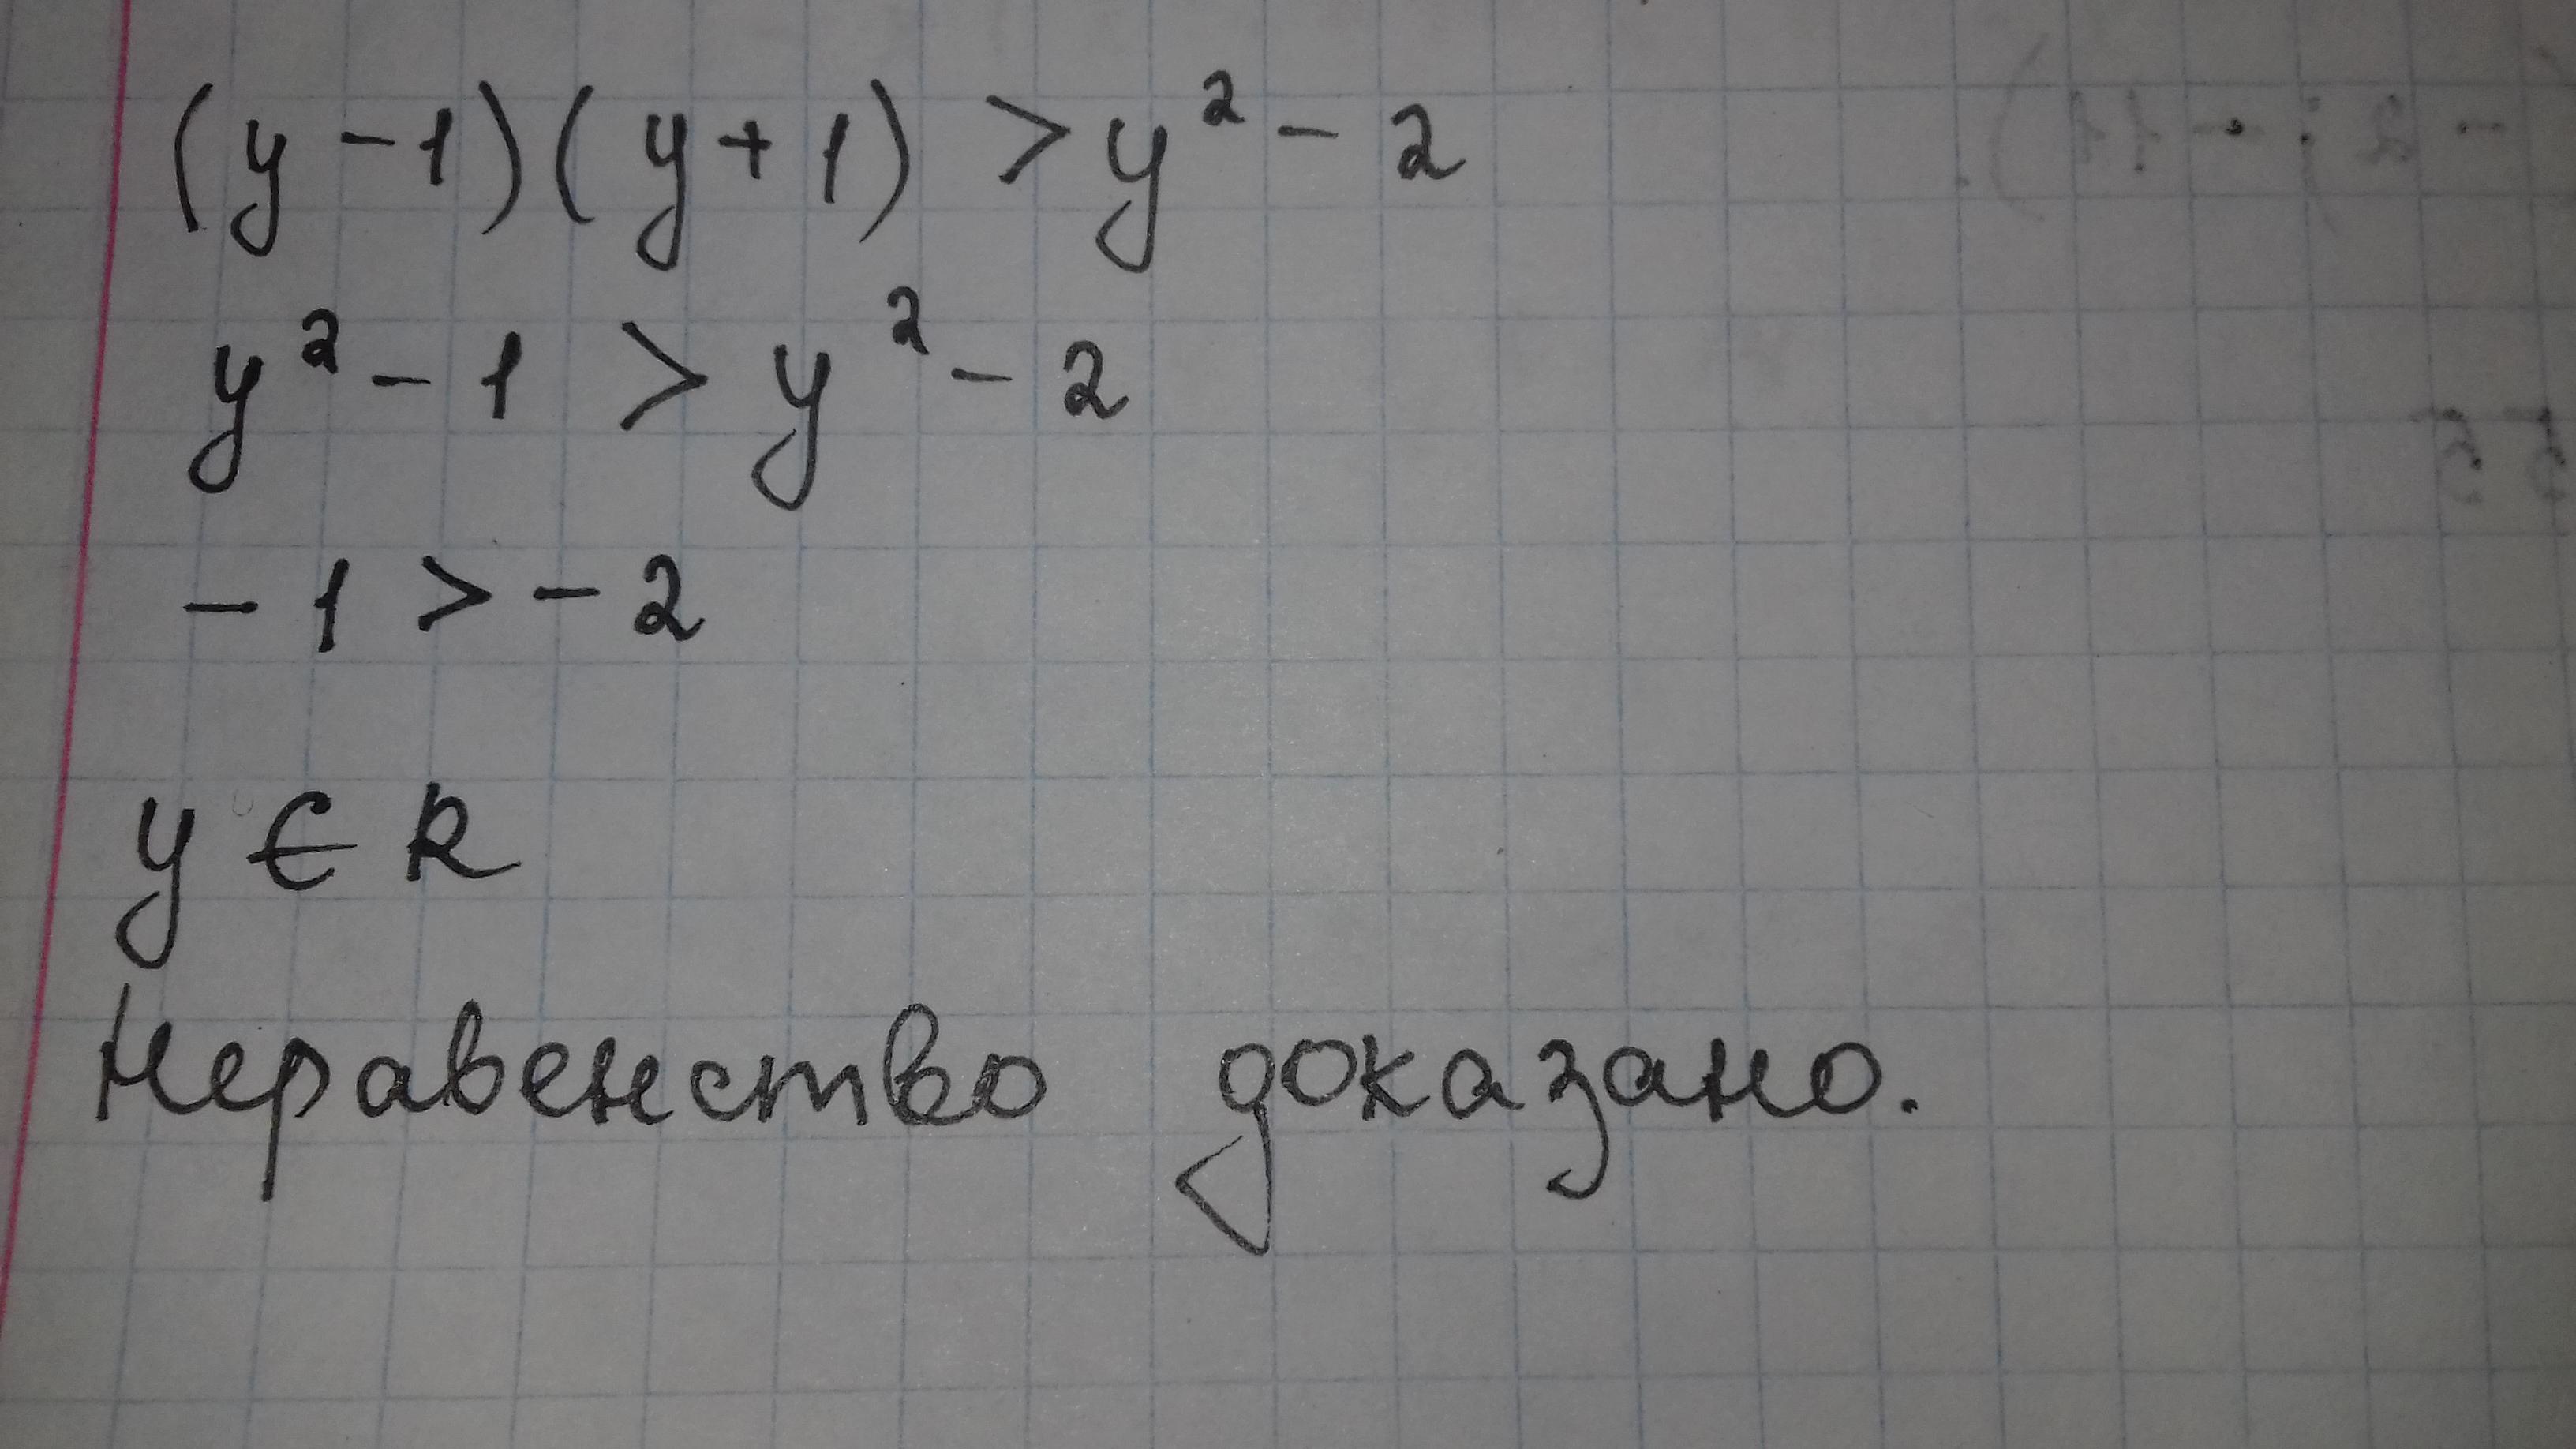 (y-1)(y+1) > y² - 2
y² - 1 > y² - 2
- 1 > - 2
y ∈ R
Неравенство доказано.